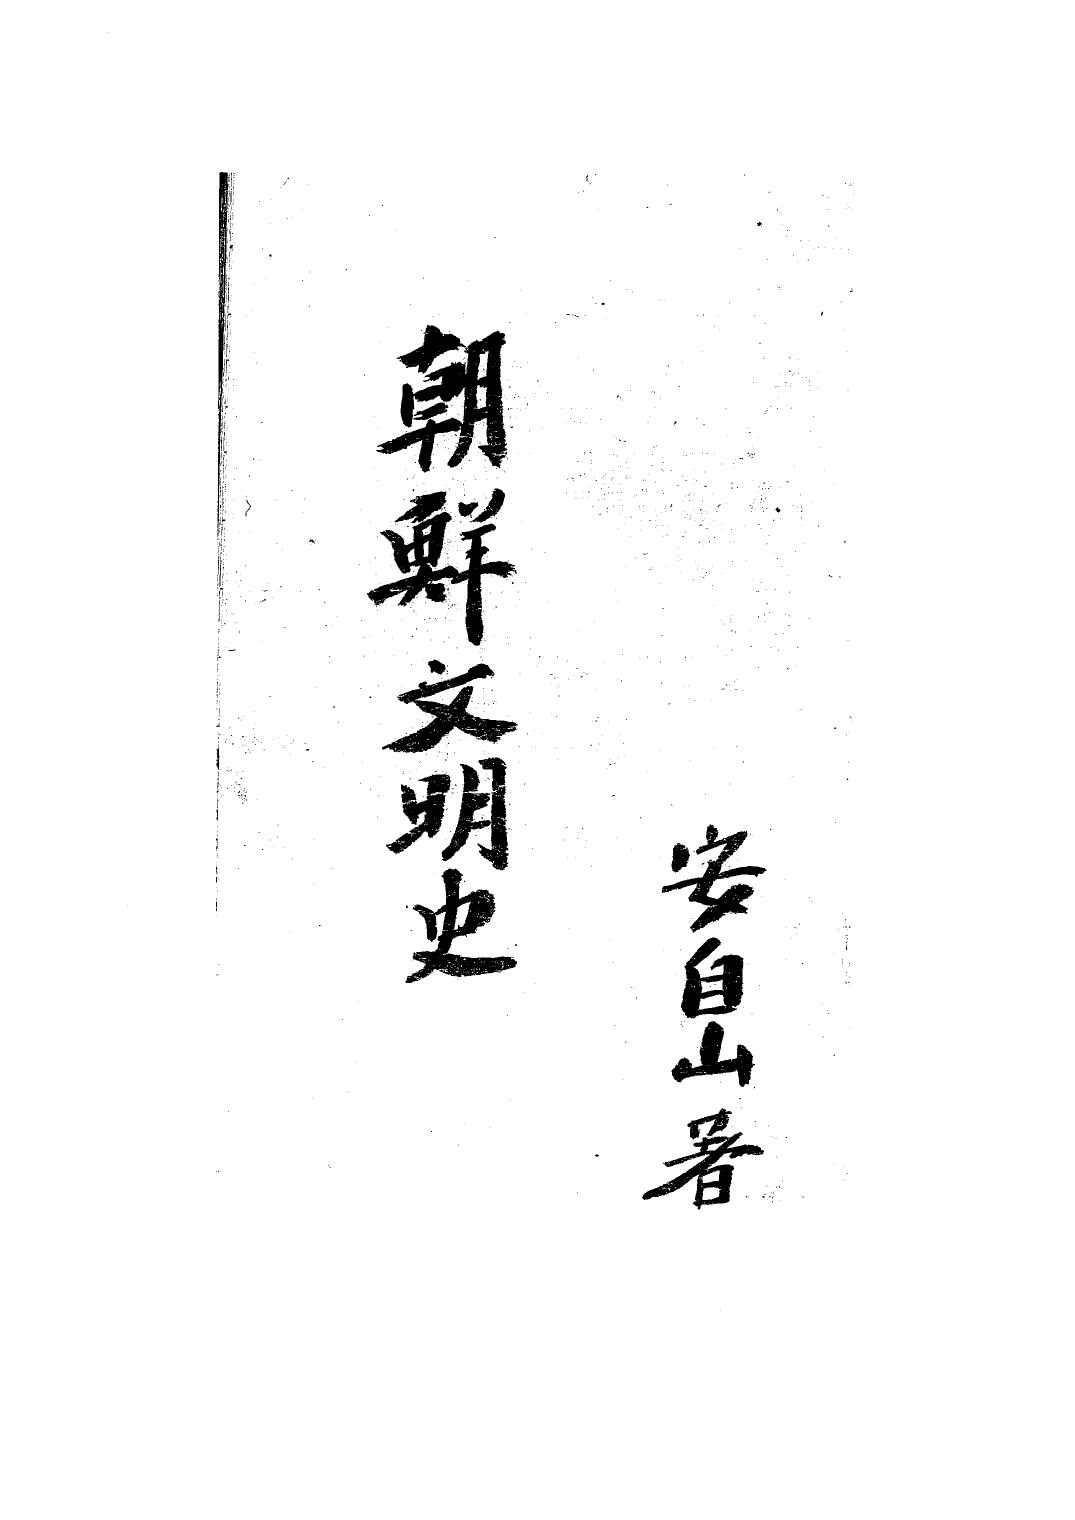 安自山著
朝鮮文明史